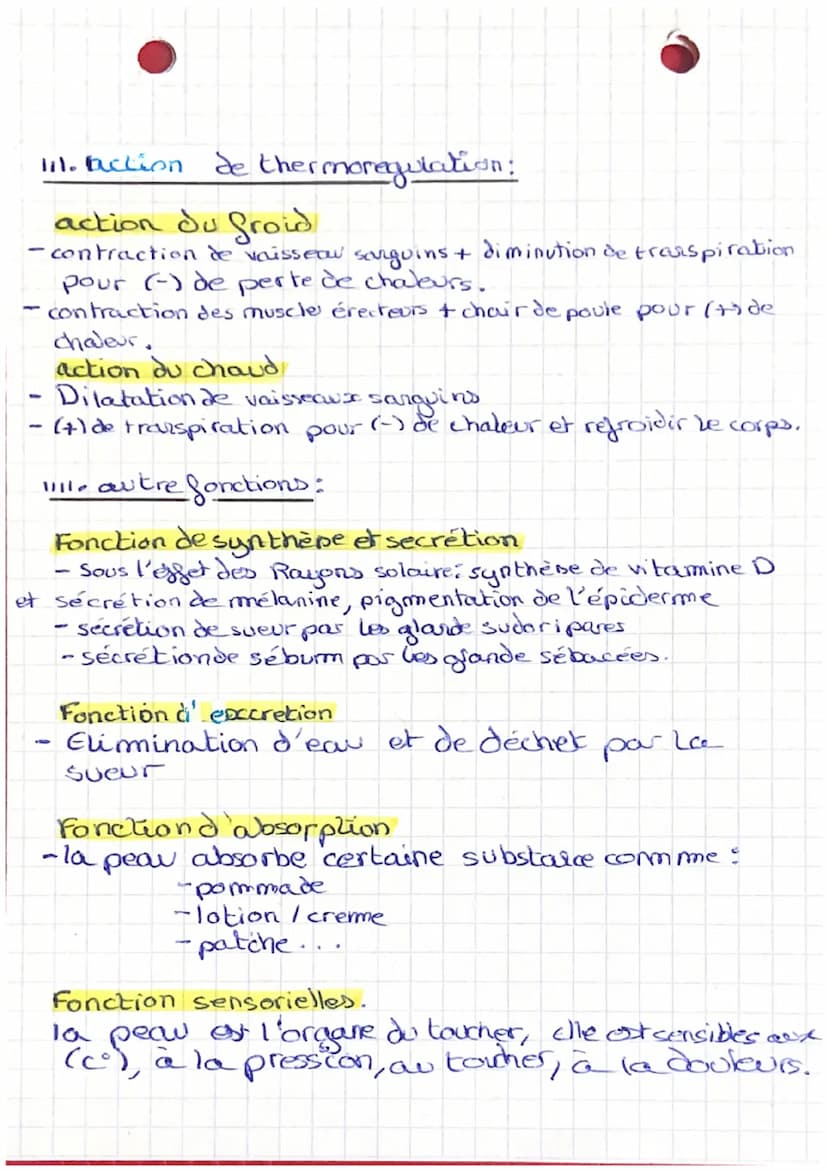 III. action de thermoregulation:
action du froid
- contraction de vaisseau sanguins + diminution de transpiration
pour (-) de perte de chaleurs.
- contraction des muscles érecteurs + chair de poule pour (+) de
chaleur.
action du chaud
- Dilatation de vaisseaux sanguins
- (+) de transpiration pour (-) de chaleur et refroidir le corps.
IIII. autre fonctions:
Fonction de synthèse et secrétion
- Sous l'effet des Rayons solaire: synthèse de vitamine D
et sécrétion de mélanine, pigmentation de l'épiderme
- sécrétion de sueur par les glande sudoripares
- sécrétion de sébum par les glande sébacées.
Fonction d'excretion
- Elimination d'eau et de déchet par la
sueur
Fonction d'absorption
- la peau absorbe certaine substance comme :
- pommade
- lotion / creme
- patche...
Fonction sensorielles.
la peau est l'organe du toucher, elle est sensibles aux
(c°), à la pression, au toucher, à la douleurs.